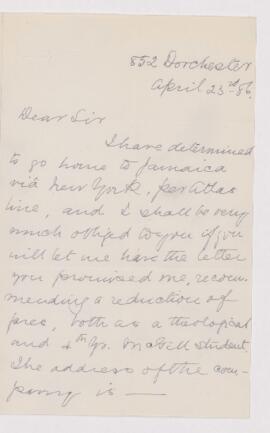 852 Dorchester
April 23rd 86.
Dear Sir
I have determined
to go home to Jamaica
via New York, per Atlas
line, and I shall be very
much obliged to you if you
will let me have the letter
you promised me, recom-
mending a reduction of
fares, both as a theological
and 4th Yr. McGill student.
The address of the com-
pany is —